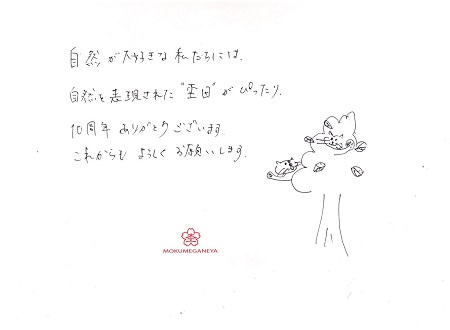 自然が大好きな私たちには、
自然を表現された"杢目"がぴったり。
10周年ありがとうございます。
これからもよろしくお願いします。
MOKUMEGANEYA